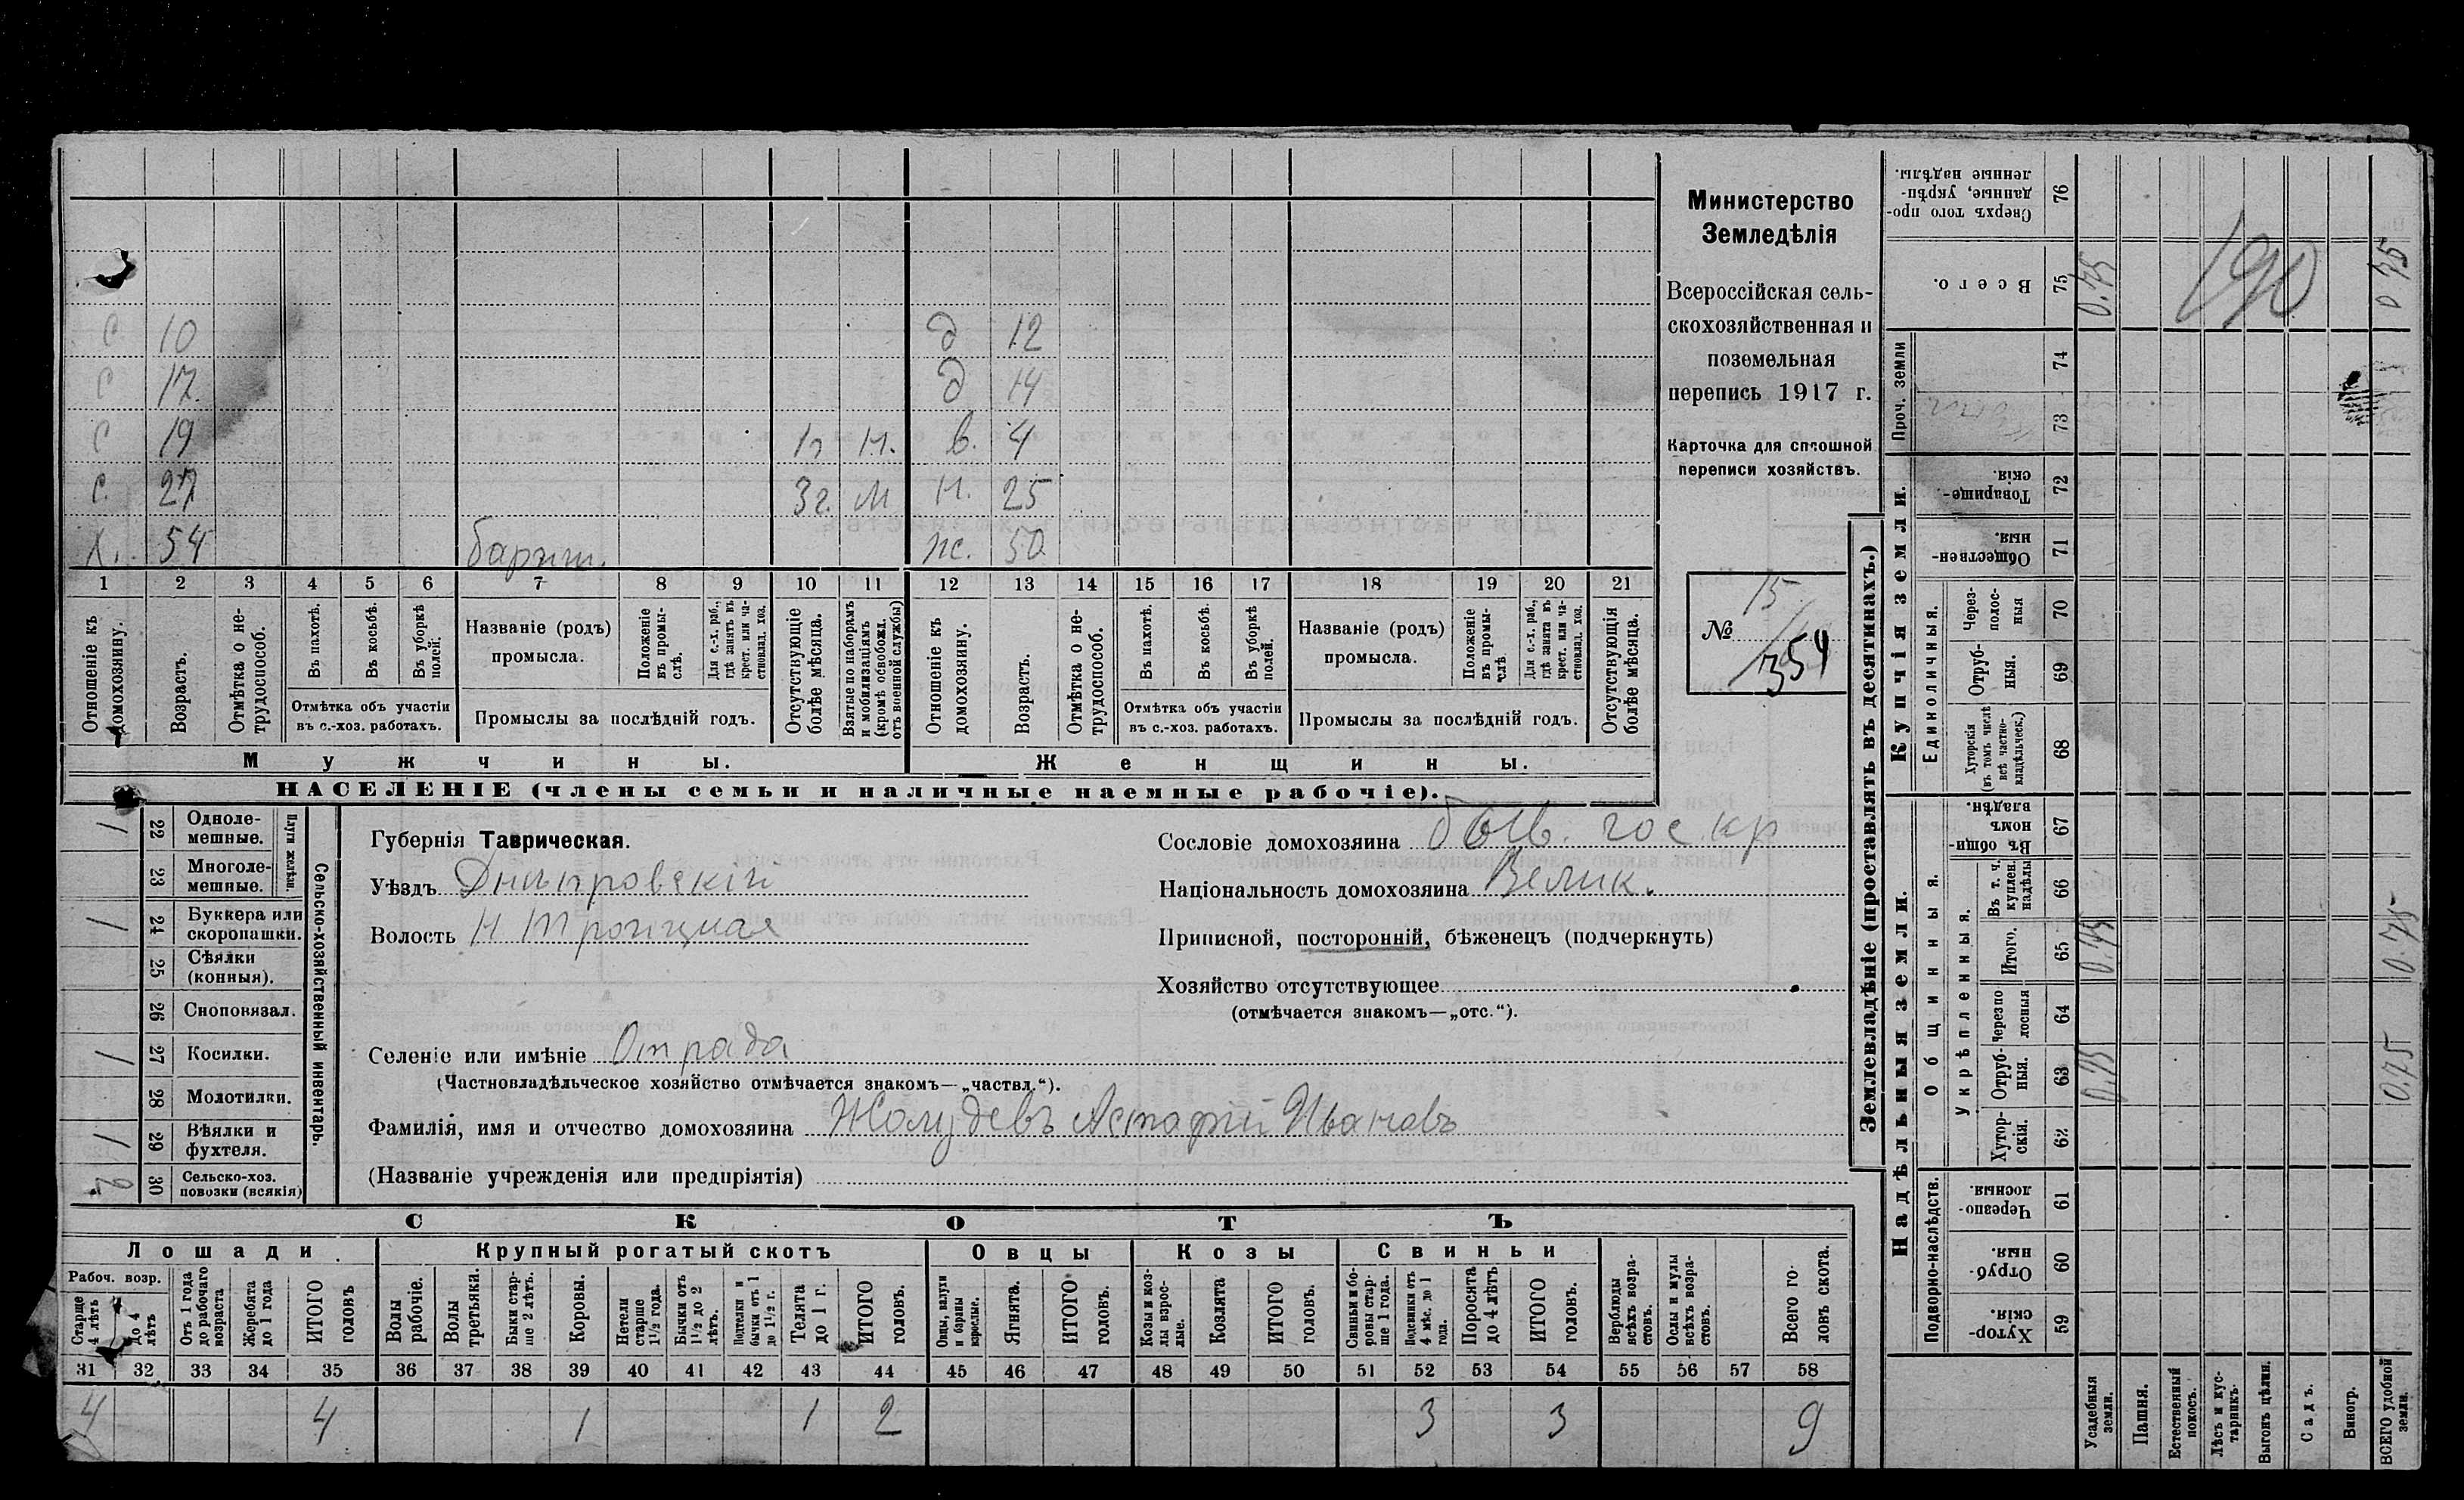 Министерство
Земледѣлія
Всероссійская сель-
скохозяйственная и
поземельная
перепись 1917 г.
Карточка для сплошной
переписи хозяйствъ.
№ 15
354
С 10 д 12
С 17 д 14
С 19 1г. М. в. 4
С. 27 3г. М Н. 25
Х. 54 ж. 50
1 2 3 4 5 6 7 8 9 10 11 12 13 14 15 16 17 18 19 20 21
Отношеніе къ домохозяину.
Возрастъ.
Отмѣтка о не-трудоспособ.
Въ пахотѣ.
Въ косьбѣ.
Въ уборкѣ полей.
Отмѣтка объ участіи
въ с.-хоз. работахъ.
Названіе (родъ)
промысла.
Положеніе въ промы-слѣ.
Для с.-х. раб., гдѣ занятъ въ крест. или ча-стновлад. хоз.
Промыслы за послѣдній годъ.
Отсутствующіе болѣе мѣсяца.
Взятые по наборамъ и мобилизаціямъ (кромѣ освобожд. отъ военной службы)
Отношеніе къ домохозяину.
Возрастъ.
Отмѣтка о не-трудоспособ.
Въ пахотѣ.
Въ косьбѣ.
Въ уборкѣ полей.
Отмѣтка объ участіи
въ с.-хоз. работахъ.
Названіе (родъ)
промысла.
Положеніе въ промы-слѣ
Для с.-х. раб., гдѣ занята въ крест. или ча-стновлад. хоз.
Промыслы за послѣдній годъ.
Отсутствующія болѣе мѣсяца.
Мужчины.
Женщины.
НАСЕЛЕНІЕ (члены семьи и наличные наемные рабочіе).
Сельско-хозяйственный инвентарь.
Плуги желѣзн.
1 22 Одноле-мешные.
23 Многоле-мешные.
1 24 Буккера или скоропашки.
25 Сѣялки (конныя).
26 Сноповязал.
1 27 Косилки.
28 Молотилки.
1 29 Вѣялки и фухтеля.
2 30 Сельско-хоз. повозки (всякія)
Губернія Таврическая.
Уѣздъ Днѣпровскій
Волость Н Троицкая
Селеніе или имѣніе Отрада
(Частновладѣльческое хозяйство отмѣчается знакомъ—„частвл.“).
Фамилія, имя и отчество домохозяина Жолудевъ Астафій Ивановъ
(Названіе учрежденія или предпріятія)
Сословіе домохозяина быв. гос. кр
Національность домохозяина Велик.
Приписной, посторонній, бѣженецъ (подчеркнуть)
Хозяйство отсутствующее
(отмѣчается знакомъ—„отс.“).
СКОТЪ
Лошади
Крупный рогатый скотъ
Овцы
Козы
Свиньи
Рабоч. возр.
Старше 4 лѣтъ
до 4 лѣтъ
Отъ 1 года до рабочаго возраста
Жеребята до 1 года
ИТОГО головъ
Волы рабочіе.
Волы третьяки.
Быки стар-ше 2 лѣтъ.
Коровы.
Нетели старше 1½ года.
Бычки отъ 1½ до 2 лѣтъ.
Подтелки и бычки отъ 1 до 1½ г.
Телята до 1 г.
ИТОГО головъ.
Овцы, валухи и бараны взрослые.
Ягнята.
ИТОГО головъ.
Козы и коз-лы взрос-лые.
Козлята
ИТОГО головъ.
Свиньи и бо-ровы стар-ше 1 года.
Подсвинки отъ 4 мѣс. до 1 года.
Поросята до 4 лѣтъ
ИТОГО головъ.
Верблюды всѣхъ возра-стовъ.
Ослы и мулы всѣхъ возра-стовъ.
Всего го-ловъ скота.
31 32 33 34 35 36 37 38 39 40 41 42 43 44 45 46 47 48 49 50 51 52 53 54 55 56 57 58
4 4 1 1 2 3 3 9
Землевладѣніе (проставлять въ десятинахъ.)
Купчія земли.
Надѣльныя земли.
Сверхъ того про-данные, укрѣп-ленные надѣлы. 76
Всего. 75 0.75 190 0 75
Проч. земли
74
73
Товарище-скія. 72
Обществен-ныя. 71
Единоличныя.
Через-полос-ныя 70
Отруб-ныя. 69
Хуторскія (въ томъ числѣ всѣ частно-владѣльческ.) 68
Общинныя
Въ общи-номъ владѣн. 67
Укрѣпленныя.
Въ т. ч. куплен. надѣлы 66
Итого. 65 0.75 0.75
Черезпо лосныя 64
Отруб-ныя. 63 0.75 0.75
Хутор-скія. 62
Подворно-наслѣдств.
Черезпо-лосныя. 61
Отруб-ныя. 60
Хутор-скія. 59
Усадебныя земли.
Пашня.
Естественный покосъ.
Лѣсъ и кус-тарникъ.
Выгонъ цѣлин.
Садъ.
Виногр.
ВСЕГО удобной земли.